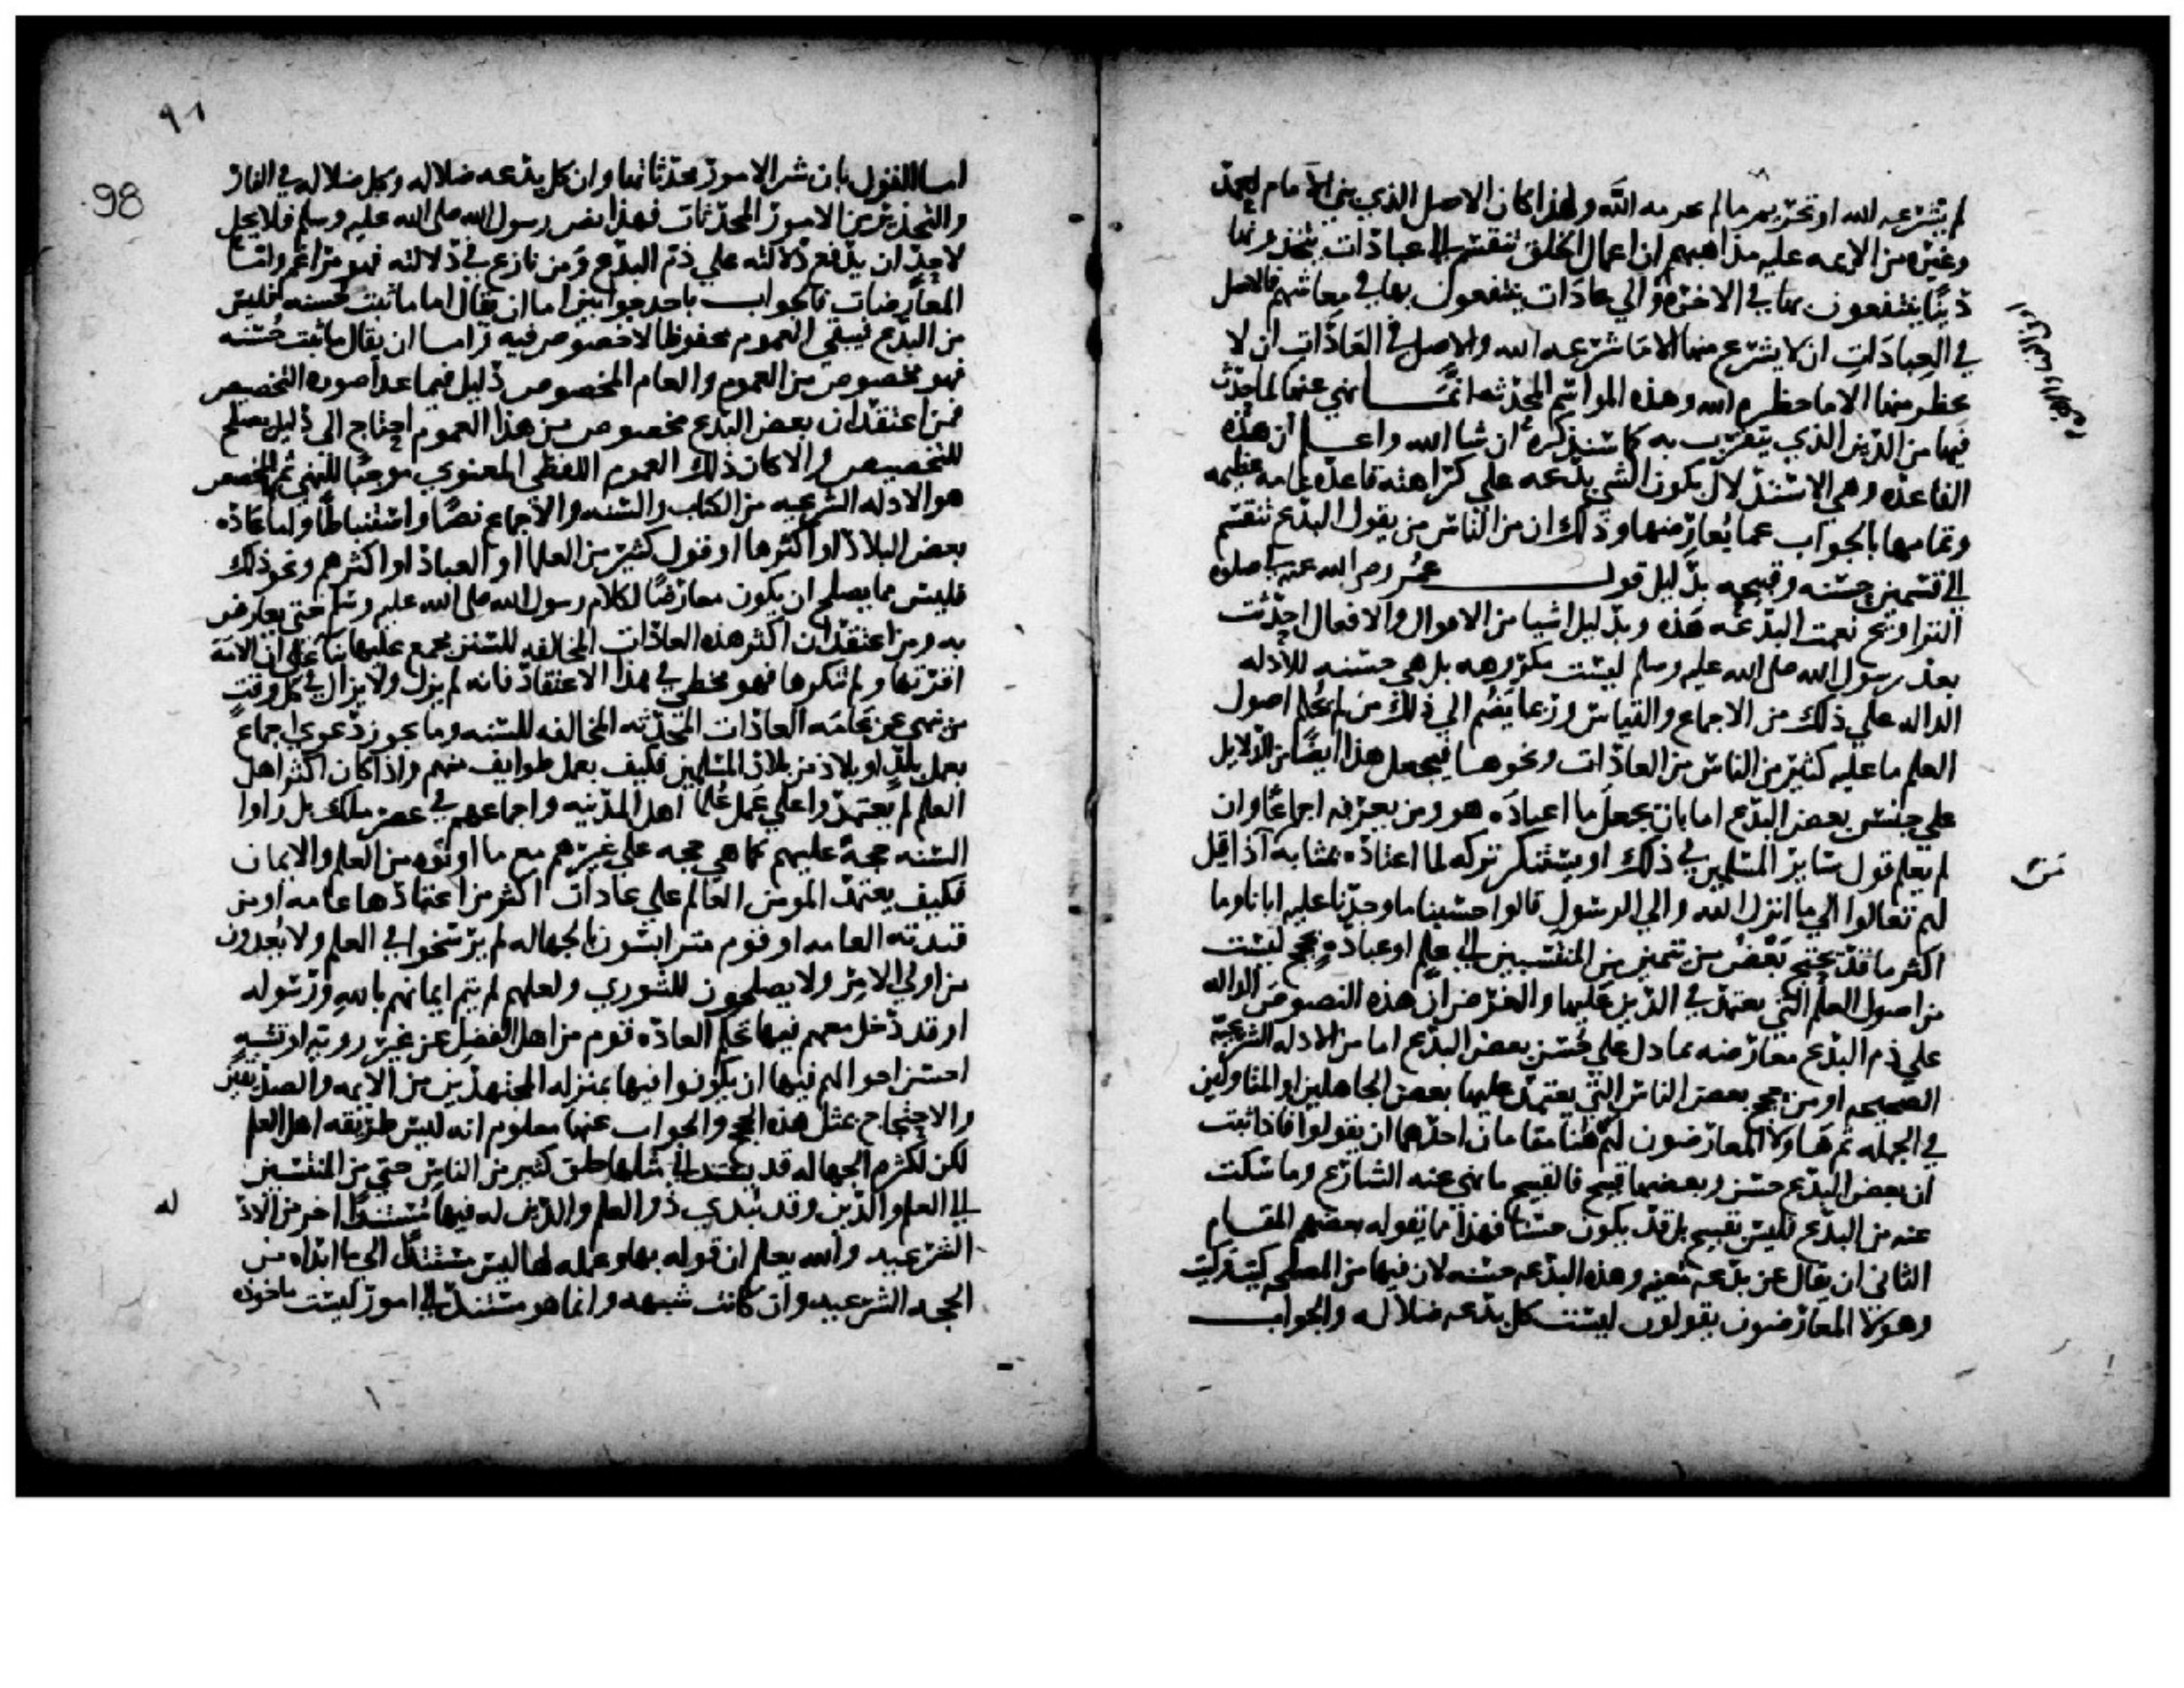 لم يشرعه الله او تحريم ما لم يحرمه الله ولهذا كان الاصل الذي بنى الامام احمد
وغيره من الايمه عليه مذاهبهم ان اعمال الخلق تنقسم الى عبادات يتخذونها
دينا ينتفعون بها في الاخره والي عادات ينتفعون بها في معايشهم فالاصل
في العبادات ان لا يشرع منها الا ما شرعه الله والاصل في العادات ان لا
يحظر منها الا ما حظره الله وهذه المواسم المحدثه انما نهي عنها لما حدث
فيها من الدين الذي يتقرب به كما سنذكره ان شا الله واعلم ان هذه
القاعده وهي الاستدلال بكون الشي بدعه علي كراهته قاعده عامه عظيمه
وتمامها بالجواب عما يعارضها وذلك ان من الناس من يقول البدع تنقسم
الي قسمين حسنه وقبيحه بدليل قول عمر رضي الله عنه في صلاه
التراويح نعمت البدعه هذه وبدليل اشيا من الاقوال والافعال احدثت
بعد رسول الله صلى الله عليه وسلم ليست مكروهه بل هي حسنه للادله
الداله علي ذلك من الاجماع والقياس وربما يضم الي ذلك من لم يحكم اصول
العلم ما عليه كثير من الناس من العادات ونحوها فيجعل هذا ايضا من الدلايل
علي حسن بعض البدع اما بان يجعل ما اعتاده هو ومن يعرفه اجماعا وان
لم يعلم قول ساير المسلمين في ذلك او يستنكر تركه لما اعتاده بمثابة اذا قيل
لهم تعالوا الي ما انزل الله والي الرسول قالوا حسبنا ما وجدنا عليه اباناوما
اكثر ما قد يحتج بعض من تميز من المنتسبين الي علم او عباده بحجج ليست
من اصول العلم التي يعتمد في الدين عليها والغرض ان هذه النصوص الداله
علي ذم البدع معارضه بما دل علي حسن بعض البدع اما من الادله الشرعيه
الصحيحه او من حجج بعض الناس التي يعتمد عليها بعض الجاهلين او المتاولين
في الجمله ثم هاولا المعارضون لهم هنا مقامان احدهما ان يقولوا فاذا ثبت
ان بعض البدع حسن وبعضها قبيح فالقبيح ما نهي عنه الشارع وما سكت
عنه من البدع فليس بقبيح بل قد يكون حسنا فهذا مما يقوله بعضهم المقام
الثاني ان يقال عن بدعه معينه وهذه البدعه حسنه لان فيها من المصلحه كيت وكيت
وهولا المعارضون يقولون ليست كل بدعه ضلاله والجواب
٩٨
98
اما القول بان شر الامور محدثاتها وان كل بدعه ضلاله وكل ضلاله في النار
والتحذير من الامور المحدثات فهذا نص رسول الله صلى الله عليه وسلم فلا يحل
لاحد ان يدفع دلالته علي ذم البدع ومن نازع في دلالته فهو مراغم واما
المعارضات فالجواب باحد جوابين اما ان يقال اما ما ثبت حسنه فليس
من البدع فيبقي العموم محفوظا لا خصوص فيه واما ان يقال ما ثبت حسنه
فهو مخصوص من العموم والعام المخصوص دليل فيما عدا صوره التخصيص
فمن اعتقد ان بعض البدع مخصوص من هذا العموم احتاج الي دليل يصلح
للتخصيص والا كان ذلك العموم اللفظي المعنوي موجبا للنهي ثم المخصص
هو الادله الشرعيه من الكتاب والسنه والاجماع نصا واستنباطا واما عاده
بعض البلاد او اكثرها او قول كثير من العلما او العباد او اكثرهم ونحو ذلك
فليس مما يصلح ان يكون معارضا لكلام رسول الله صلى الله عليه وسلم حتي يعارض
به ومن اعتقد ان اكثر هذه العادات المخالفه للسنن مجمع عليها بنا علي ان الامه
اقرتها ولم تنكرها فهو مخطي في هذا الاعتقاد فانه لم يزل ولا يزال في كل وقت
من نهي عن عامه العادات المحدثه المخالفه للسنه وما يجوز دعوي اجماع
بعمل بلد او بلاد من بلاد المسلمين فكيف بعمل طوايف منهم واذا كان اكثر اهل
العلم لم يعتمدوا علي عمل علما اهل المدينه واجماعهم في عصر ملك بل راوا
السنه حجة عليهم كما هي حجه علي غيرهم مع ما اوتوه من العلم والايمان
فكيف يعتمد المومن العالم علي عادات اكثر من اعتادها عامه او من
قيدته العامه او قوم مترايسون بالجهاله لم يرسخوا في العلم ولا يعدون
من اولي الامر ولا يصلحون للشوري ولعلهم لم يتم ايمانهم بالله ورسوله
او قد دخل معهم فيها بحكم العاده قوم من اهل الفضل عن غير رويه او لشبهه
احسن احوالهم فيها ان يكونوا فيها بمنزله المجتهدين من الايمه والصديقين
والاحتجاج بمثل هذه الحجج والجواب عنها معلوم انه ليس طريقه اهل العلم
لكن لكثره الجهاله قد يستند الي مثلها خلق كثير من الناس حتي من المنتسبين
الي العلم والدين وقد يبدي ذو العلم والدين له فيها مستندا اخر من الاد
له
الشرعيه والله يعلم ان قوله بها وعمله لها ليس مستندا الي ما ابداه من
الحجه الشرعيه وان كانت شبهه وانما هو مستند الي امور ليست ماخوذه